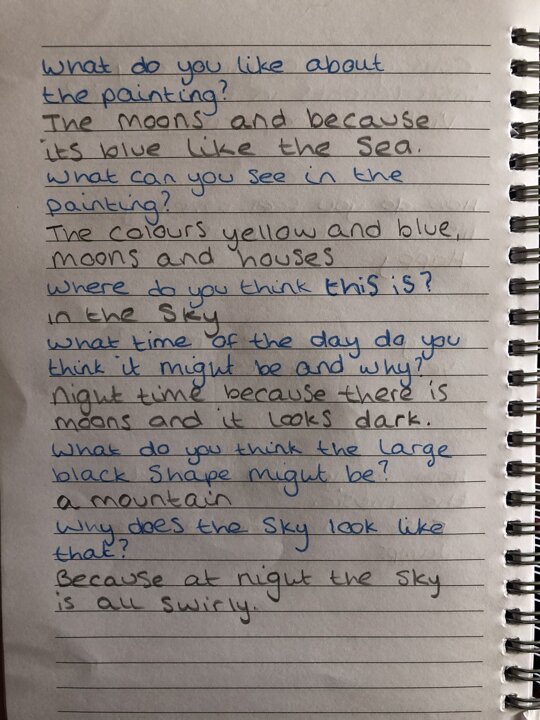 What do you like about
the painting?
The moons and because
its blue like the sea.
What can you see in the
painting?
The colours yellow and blue,
moons and houses
Where do you think this is?
in the sky
What time of the day do you
think it might be and why?
night time because there is
moons and it looks dark.
What do you think the large
black shape might be?
a mountain
Why does the sky look like
that?
Because at night the sky
is all swirly.